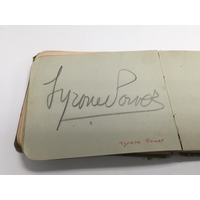 Tyrone Power
Tyrone Power